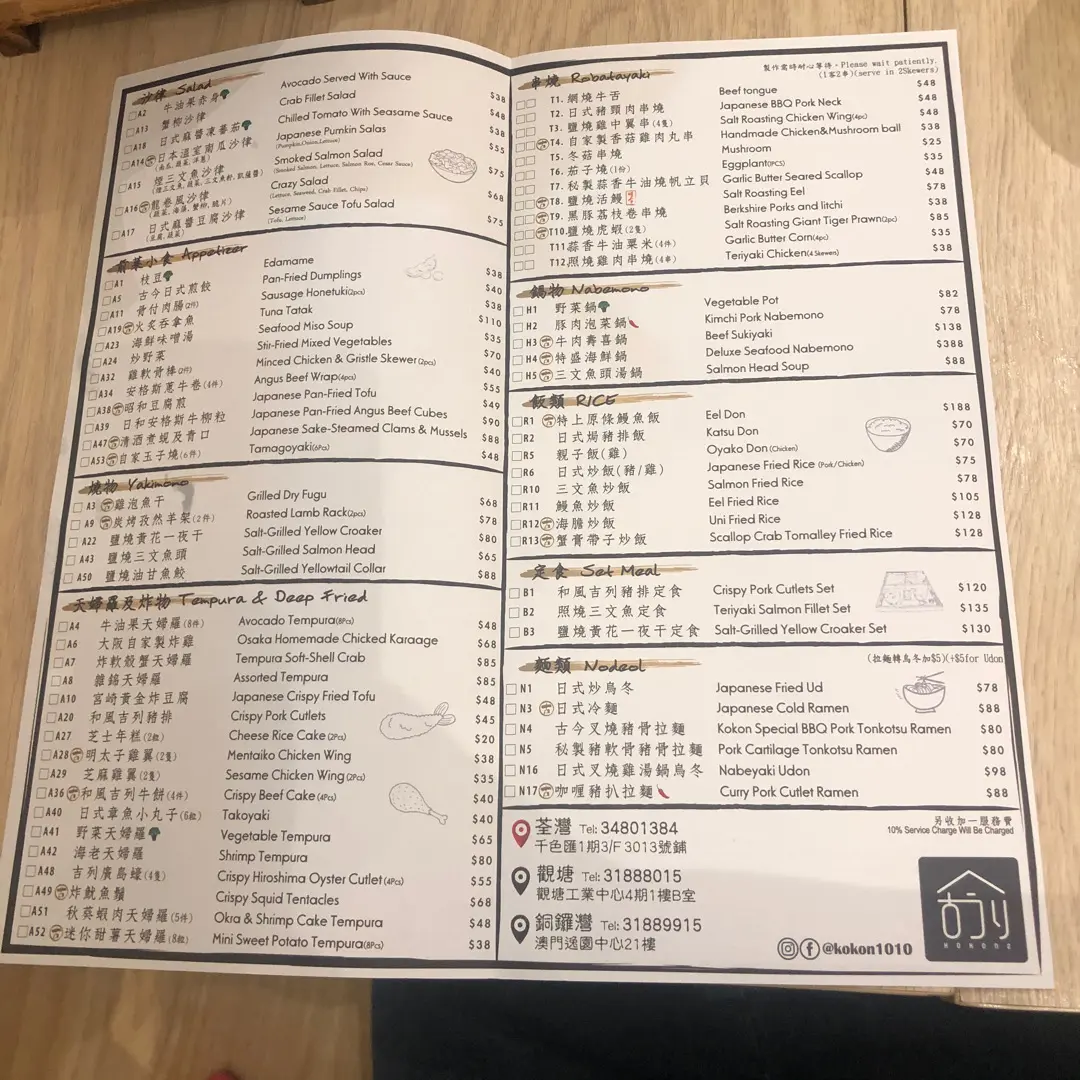 沙律 Salad
A2 牛油果赤身 Avocado Served With Sauce $38
A13 蟹柳沙律 Crab Fillet Salad $48
A18 日式麻醬凍蕃茄 Chilled Tomato With Seasame Sauce $38
A14 日本溫室南瓜沙律 Japanese Pumkin Salas $55
(南瓜, 蔬菜, 洋蔥) (Pumpkin,Onion,Lettuce)
A15 煙三文魚沙律 Smoked Salmon Salad $75
(煙三文魚, 蔬菜, 三文魚籽, 凱薩醬) (Smoked Salmon, Lettuce, Salmon Roe, Cesar Sauce)
A16 龍卷風沙律 Crazy Salad $68
(蔬菜, 海藻, 蟹柳, 脆片) (Lettuce, Seaweed, Crab Fillet, Chips)
A17 日式麻醬豆腐沙律 Sesame Sauce Tofu Salad $75
(豆腐, 蔬菜) (Tofu, Lettuce)
前菜小食 Appetizer
A1 枝豆 Edamame $38
A5 古今日式煎餃 Pan-Fried Dumplings $40
A11 骨付肉腸(2件) Sausage Honetuki(2pcs) $38
A19 火炙吞拿魚 Tuna Tatak $110
A23 海鮮味噌湯 Seafood Miso Soup $35
A24 炒野菜 Stir-Fried Mixed Vegetables $70
A32 雞軟骨棒(2件) Minced Chicken & Gristle Skewer(2pcs) $40
A34 安格斯蔥牛卷(4件) Angus Beef Wrap(4pcs) $55
A38 昭和豆腐煎 Japanese Pan-Fried Tofu $49
A39 日和安格斯牛柳粒 Japanese Pan-Fried Angus Beef Cubes $90
A47 清酒煮蜆及青口 Japanese Sake-Steamed Clams & Mussels $88
A53 自家玉子燒(6件) Tamagoyaki(6Pcs) $48
燒物 Yakimono
A3 雞泡魚干 Grilled Dry Fugu $68
A9 炭烤孜然羊架(2件) Roasted Lamb Rack(2pcs) $78
A22 鹽燒黃花一夜干 Salt-Grilled Yellow Croaker $80
A43 鹽燒三文魚頭 Salt-Grilled Salmon Head $65
A50 鹽燒油甘魚鮫 Salt-Grilled Yellowtail Collar $88
天婦羅及炸物 Tempura & Deep Fried
A4 牛油果天婦羅(8件) Avocado Tempura(8Pcs) $48
A6 大阪自家製炸雞 Osaka Homemade Chicked Karaage $68
A7 炸軟殼蟹天婦羅 Tempura Soft-Shell Crab $85
A8 雜錦天婦羅 Assorted Tempura $85
A10 宮崎黃金炸豆腐 Japanese Crispy Fried Tofu $48
A20 和風吉列豬排 Crispy Pork Cutlets $45
A27 芝士年糕(2粒) Cheese Rice Cake(2Pcs) $20
A28 明太子雞翼(2隻) Mentaiko Chicken Wing $38
A29 芝麻雞翼(2隻) Sesame Chicken Wing(2Pcs) $35
A36 和風吉列牛餅(4件) Crispy Beef Cake(4Pcs) $40
A40 日式章魚小丸子(6粒) Takoyaki $40
A41 野菜天婦羅 Vegetable Tempura $65
A42 海老天婦羅 Shrimp Tempura $80
A48 吉列廣島蠔(4隻) Crispy Hiroshima Oyster Cutlet(4Pcs) $55
A49 炸魷魚鬚 Crispy Squid Tentacles $68
A51 秋葵蝦肉天婦羅(5件) Okra & Shrimp Cake Tempura $48
A52 迷你甜薯天婦羅(8粒) Mini Sweet Potato Tempura(8Pcs) $38
串燒 Robatayaki
製作需時耐心等待。Please wait patiently.
(1客2串)(serve in 2Skewers)
T1. 網燒牛舌 Beef tongue $48
T2. 日式豬頸肉串燒 Japanese BBQ Pork Neck $48
T3. 鹽燒雞中翼串(4隻) Salt Roasting Chicken Wing(4pc) $48
T4. 自家製香菇雞肉丸串 Handmade Chicken&Mushroom ball $38
T5. 冬菇串燒 Mushroom $25
T6. 茄子燒(1份) Eggplant(1PCS) $35
T7. 秘製蒜香牛油燒帆立貝 Garlic Butter Seared Scallop $48
T8. 鹽燒活鰻 Salt Roasting Eel $78
T9. 黑豚荔枝卷串燒 Berkshire Porks and litchi $38
T10. 鹽燒虎蝦(2隻) Salt Roasting Giant Tiger Prawn(2pc) $85
T11 蒜香牛油粟米(4件) Garlic Butter Corn(4pc) $35
T12. 照燒雞肉串燒(4串) Teriyaki Chicken(4 Skewen) $38
鍋物 Nabemono
H1 野菜鍋 Vegetable Pot $82
H2 豚肉泡菜鍋 Kimchi Pork Nabemono $78
H3 牛肉壽喜鍋 Beef Sukiyaki $138
H4 特盛海鮮鍋 Deluxe Seafood Nabemono $388
H5 三文魚頭湯鍋 Salmon Head Soup $88
飯類 RICE
R1 特上原條鰻魚飯 Eel Don $188
R2 日式焗豬排飯 Katsu Don $70
R5 親子飯(雞) Oyako Don (Chicken) $70
R6 日式炒飯(豬/雞) Japanese Fried Rice (Pork/Chicken) $75
R10 三文魚炒飯 Salmon Fried Rice $78
R11 鰻魚炒飯 Eel Fried Rice $105
R12 海膽炒飯 Uni Fried Rice $128
R13 蟹膏帶子炒飯 Scallop Crab Tomalley Fried Rice $128
定食 Set Meal
B1 和風吉列豬排定食 Crispy Pork Cutlets Set $120
B2 照燒三文魚定食 Teriyaki Salmon Fillet Set $135
B3 鹽燒黃花一夜干定食 Salt-Grilled Yellow Croaker Set $130
麵類 Nodeol (拉麵轉烏冬加$5)(+$5for Udon
N1 日式炒烏冬 Japanese Fried Ud $78
N3 日式冷麵 Japanese Cold Ramen $88
N4 古今叉燒豬骨拉麵 Kokon Special BBQ Pork Tonkotsu Ramen $80
N5 秘製豬軟骨豬骨拉麵 Pork Cartilage Tonkotsu Ramen $80
N16 日式叉燒雞湯鍋烏冬 Nabeyaki Udon $98
N17 咖喱豬扒拉麵 Curry Pork Cutlet Ramen $88
另收加一服務費
10% Service Charge Will Be Charged
荃灣 Tel: 34801384
千色匯1期3/F 3013號鋪
觀塘 Tel: 31888015
觀塘工業中心4期1樓B室
銅鑼灣 Tel: 31889915
澳門逸園中心21樓
@kokon1010
KOKONO